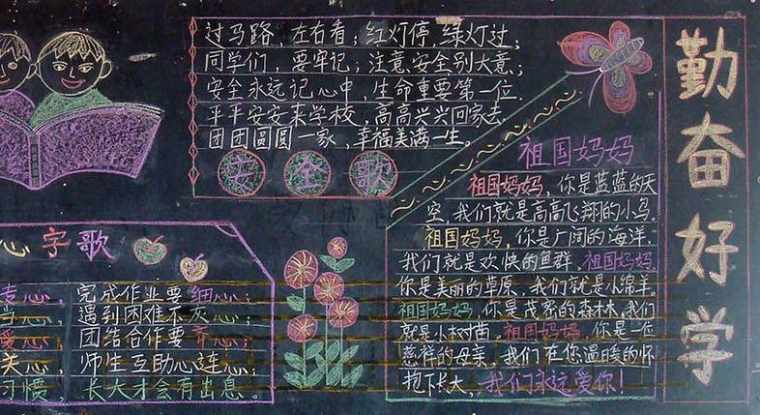 过马路，左右看；红灯停，绿灯过；
同学们，要牢记；注意安全别大意；
安全永远记心中，生命重要第一位.
平平安安来学校，高高兴兴回家去.
团团圆圆一家，幸福美满一生。
安全歌
心字歌
专心，完成作业要细心；
心，遇到困难不灰心；
爱心，团结合作要齐心；
关心，师生互助心连心；
习惯，长大才会有出息。
祖国妈妈
祖国妈妈，你是蓝蓝的天
空，我们就是高高飞翔的小鸟.
祖国妈妈，你是广阔的海洋.
我们就是欢快的鱼群，祖国妈妈
你是美丽的草原，我们就是小绵羊，
祖国妈妈，你是茂密的森林，我们
就是小树苗，祖国妈妈，你是一位
慈祥的母亲，我们在您温暖的怀
抱下长大，我们永远爱你！
勤奋好学